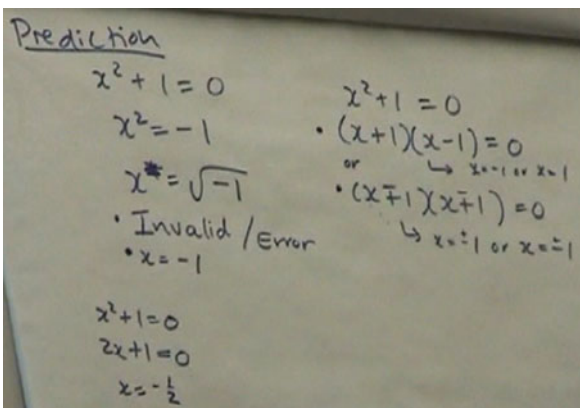 Prediction
x² + 1 = 0
x² = -1
x = √-1
• Invalid / Error
• x = -1
x² + 1 = 0
2x + 1 = 0
x = -½
x² + 1 = 0
• (x+1)(x-1) = 0
or ↳ x=-1 or x=1
• (x∓1)(x∓1) = 0
↳ x=±1 or x=±1